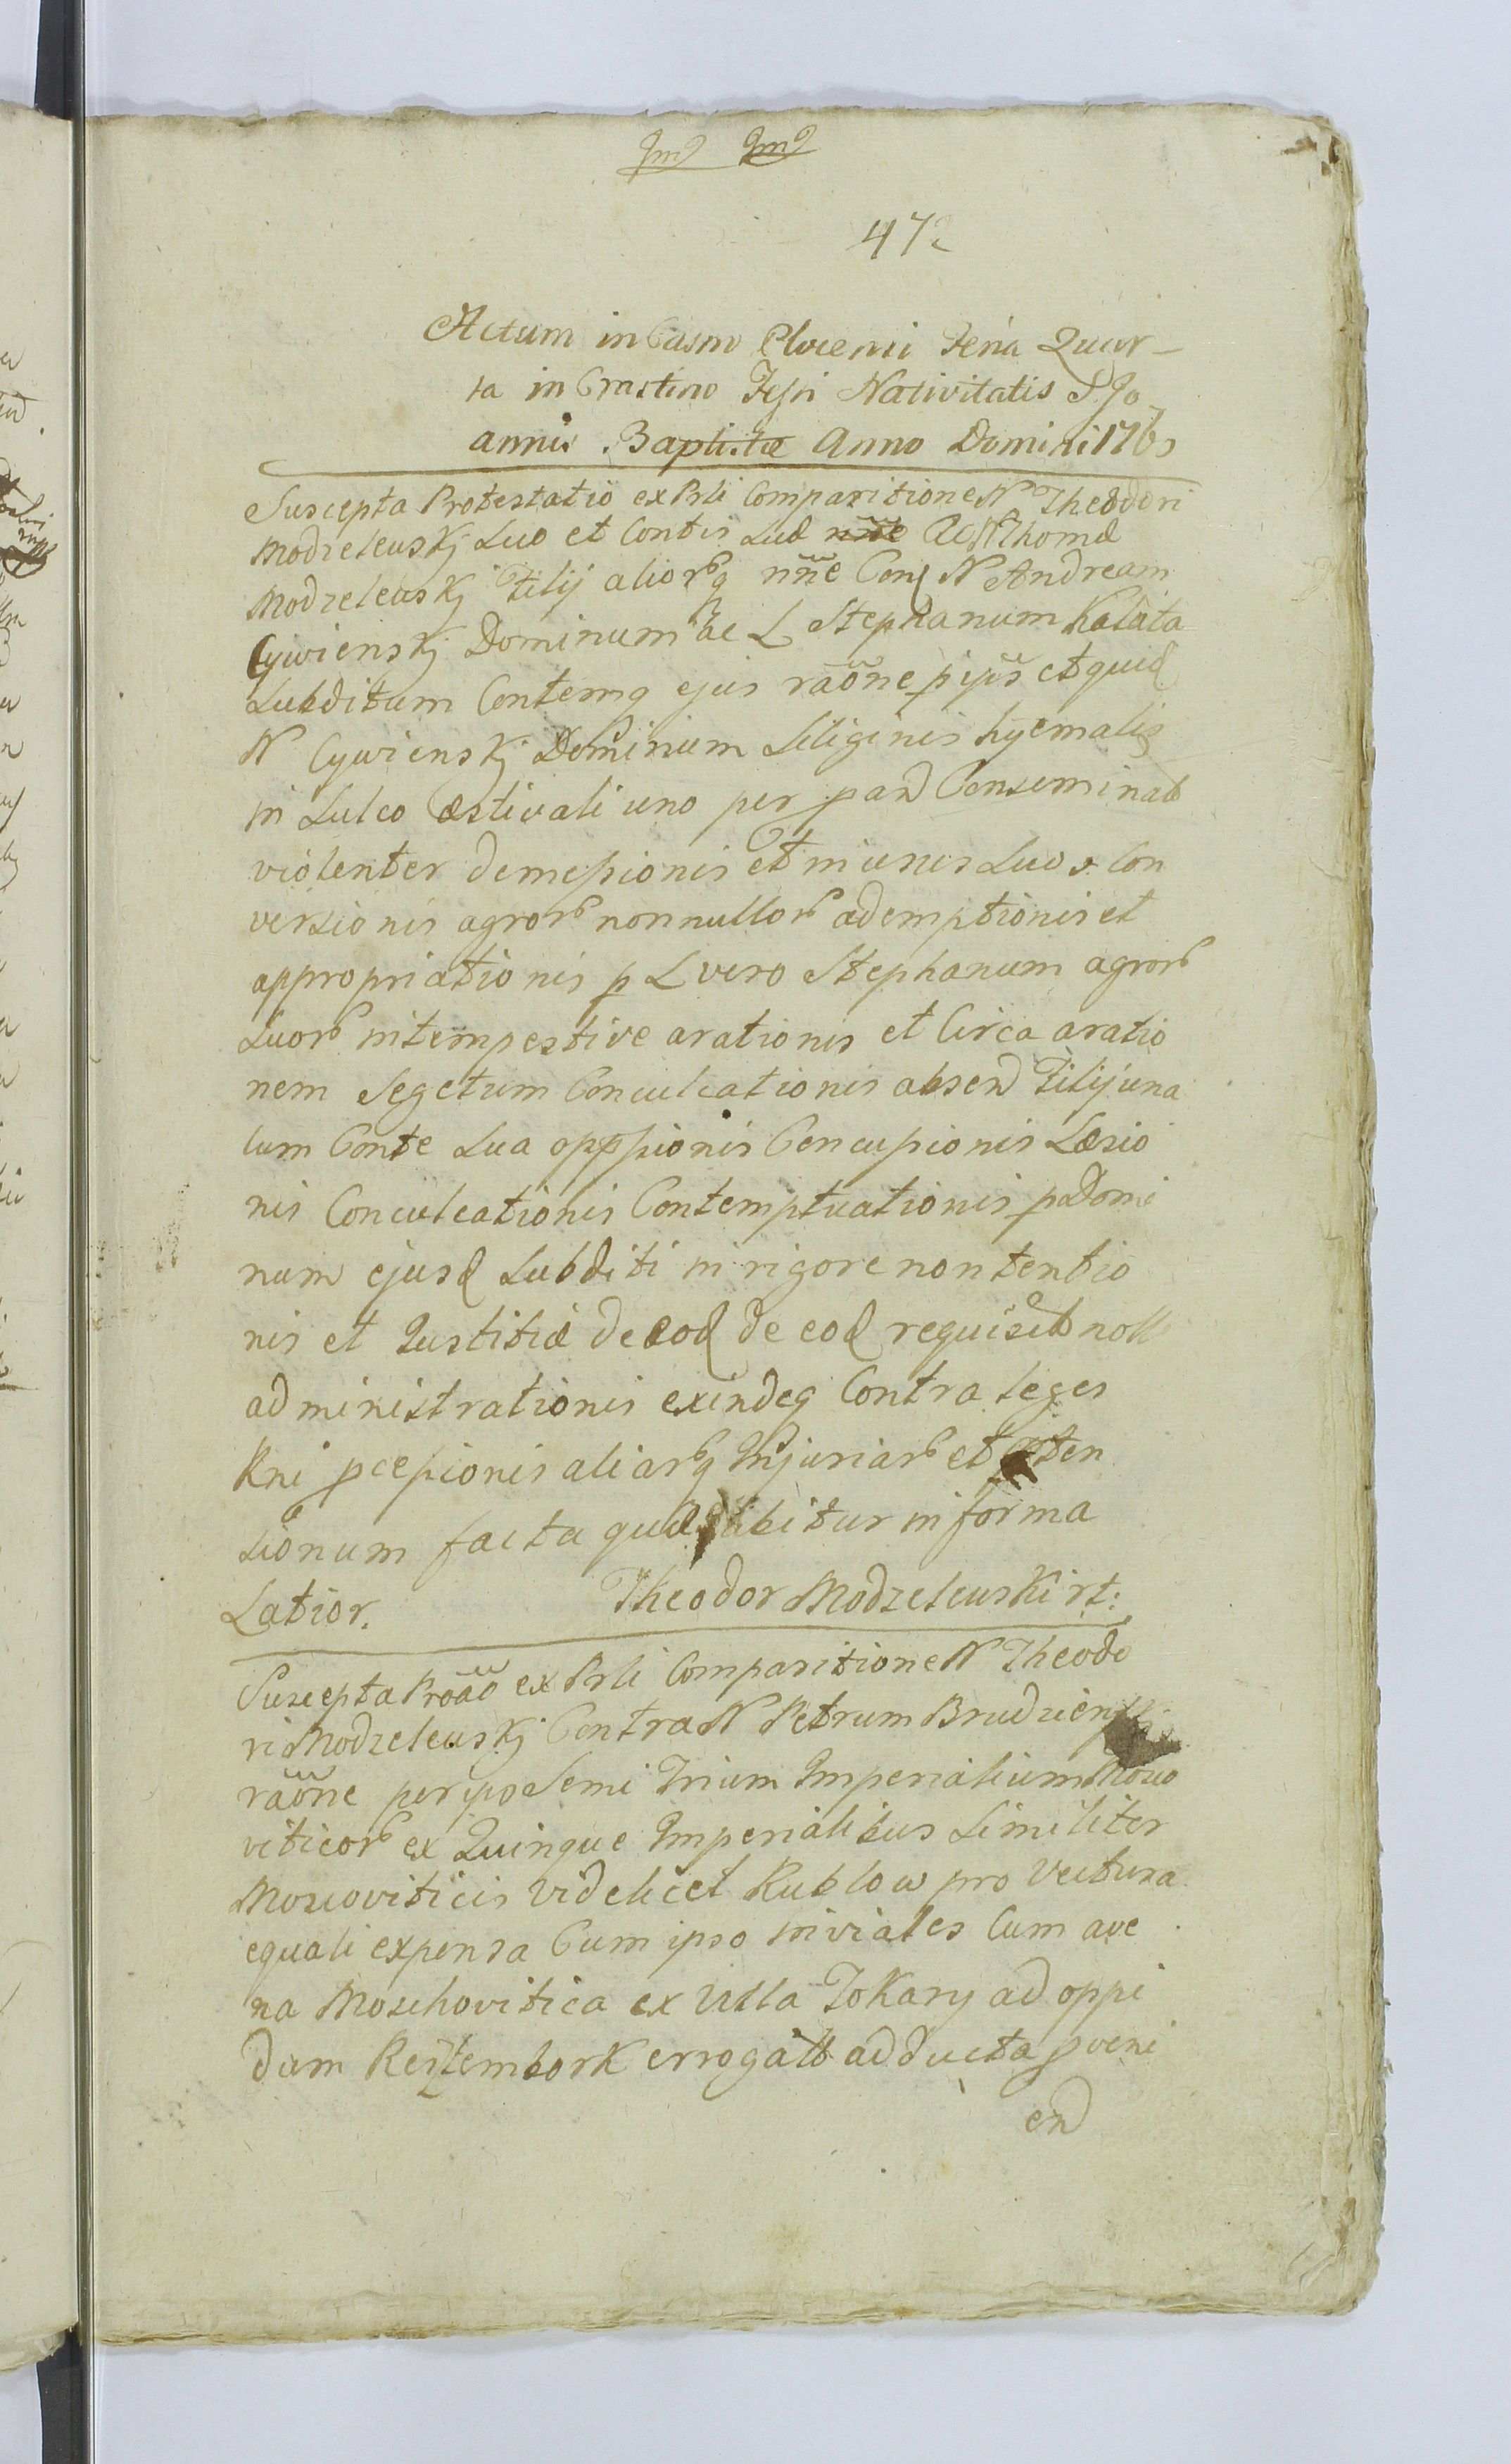 472
Actum in Castro Plocensi Feria Quar-
ta in Crastino Festi Nativitatis S Jo
annis Baptistæ Anno Domini 176
Suscepta Protestatio ex Prli Comparitione N Theodori
Modzelewskj Suo et Contis Suæ nne Ac N Thomæ
Modzelewskj Filij aliorq nne Con N Andream
Cywienskj Dominum ac L Stephanum Kałata
Subditum Contemq ejus raõne p ipũ et quid
N Cywienskj Dominum Siliginis hyemalis
in Sulco Æstivali uno per pand Conseminat
violenter demessionis et in usus Suos Con
versionis agror nonnullor ademptionis et
appropriationis p L vero Stephanum agror
Suor intempestive arationis et Circa aratio
nem Segetum Conculcationis absend Filij una
cum Conte Sua oppssionis Concussionis Læsio
nis Conculcationis Contemptuationis p Domi
num ejusd Subditi in rigore non tentio
nis et Justitiæ de eod de eod requisit non
administrationis exindeq Contra leges
Rni pcessionis aliarq Injuriar et
sionum facta quæ dabitur in forma
Latior. Theodor Modzelewski rt:
Suscepta Proão ex Prli Comparitione N Theodo
ri Modzelewskj Contra N Petrum Brudziensk
raõne per ipo Semi Trium Imperialium Mosco
viticor ex Quinque Imperialibus Similiter
Moscoviticis videlicet Rublow pro Vectura
equali expensa Cum ipso in viates Cum ave
na Moschovitica ex Villa Tokary ad oppi
dum Reyzembork errogatt adducta pveni
end